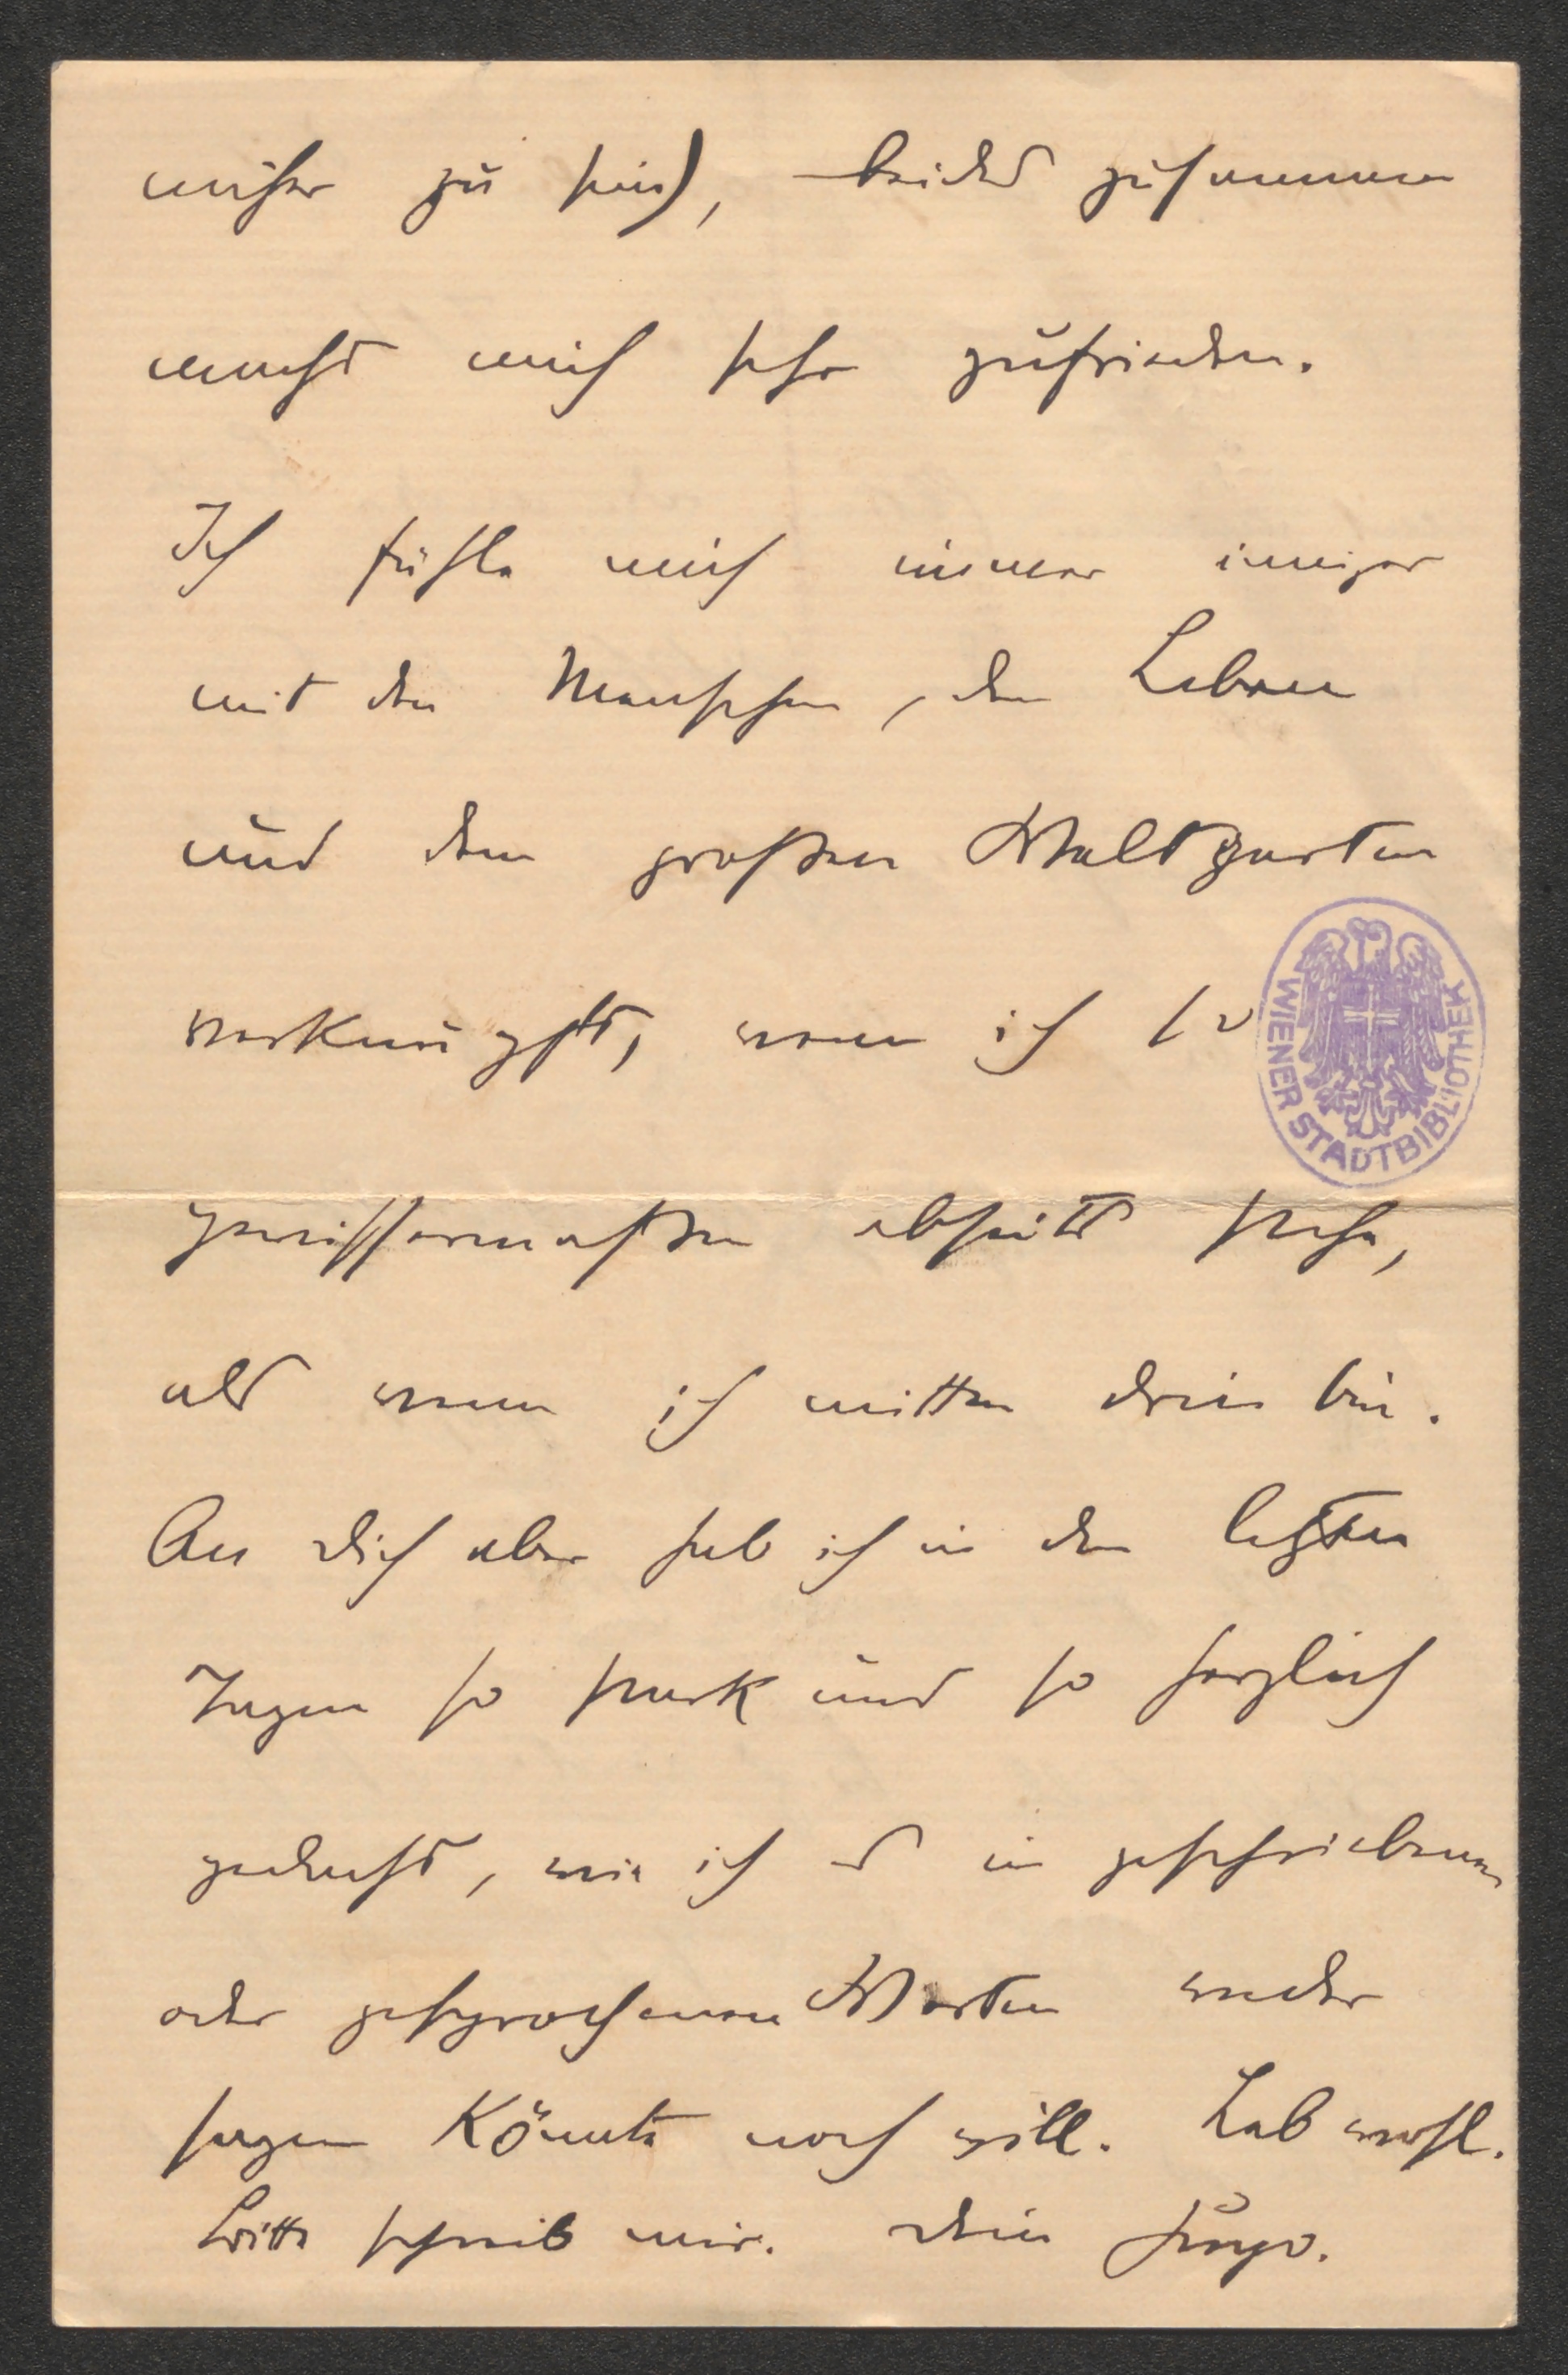 näher zu sein), beides zusammen
macht mich sehr zufrieden.
Ich fühle mich immer inniger
mit den Menschen, dem Leben
und dem großen Weltgarten
verknüpft, wenn ich so
gewissermaßen abseits stehe,
als wenn ich mitten drin bin.
An dich aber hab ich in den letzten
Tagen so stark und so herzlich
gedacht, wie ich es in geschriebenen
oder gesprochenen Worten weder
sagen könnte noch will. Leb wohl.
Bitte schreib mir. dein Hugo.
WIENER STADTBIBLIOTHEK